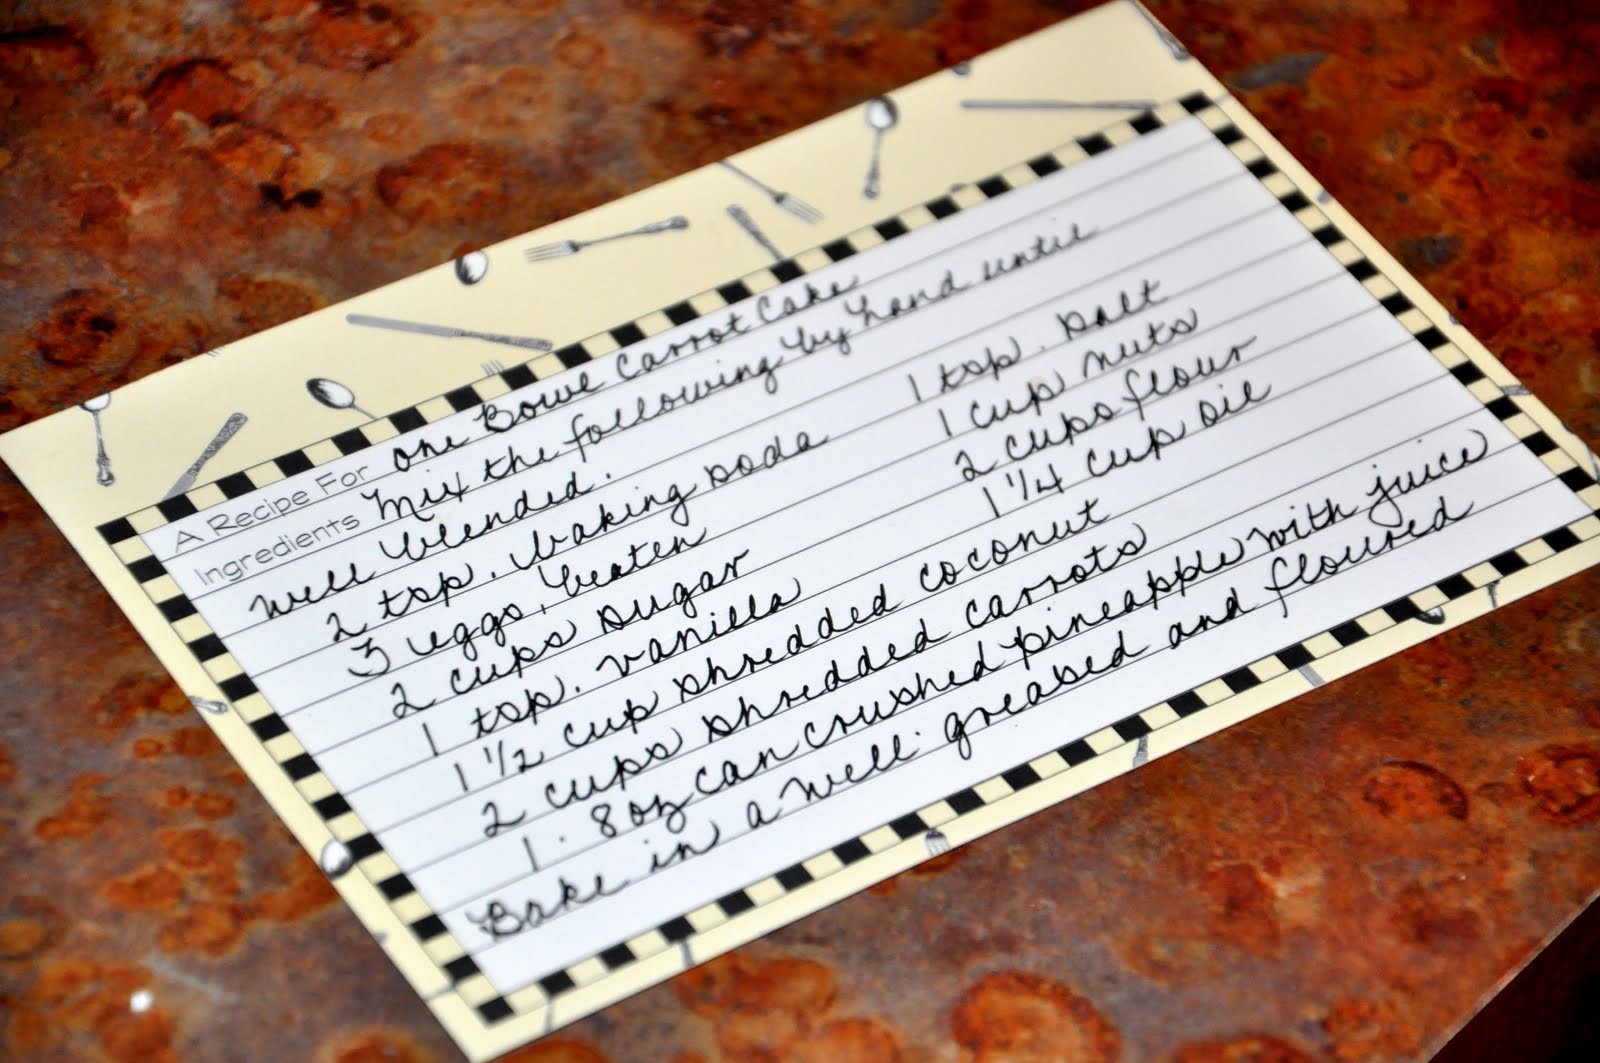 A Recipe For One Bowl Carrot Cake
Ingredients Mix the following by hand until
well blended.
2 tsp. baking soda 1 tsp. salt
3 eggs, beaten 1 cup nuts
2 cups sugar 2 cups flour
1 tsp. vanilla 1 1/4 cup oil
1 1/2 cup shredded coconut
2 cups shredded carrots
1. 8oz can crushed pineapple with juice
Bake in a well greased and floured